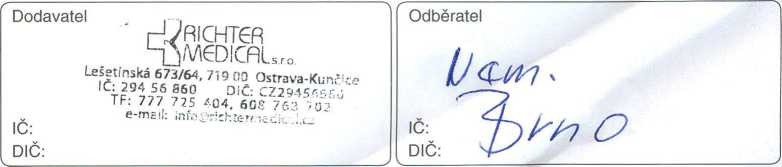 Dodavatel
RICHTER
MEDICAL s.r.o.
Lešetínská 673/64, 719 00 Ostrava-Kunčice
IČ: 294 56 860 DIČ: CZ29456860
TF: 777 725 404, 608 763 702
e-mail: info@richtermedical.cz
IČ:
DIČ:
Odběratel
Nam.
Brno
IČ:
DIČ: